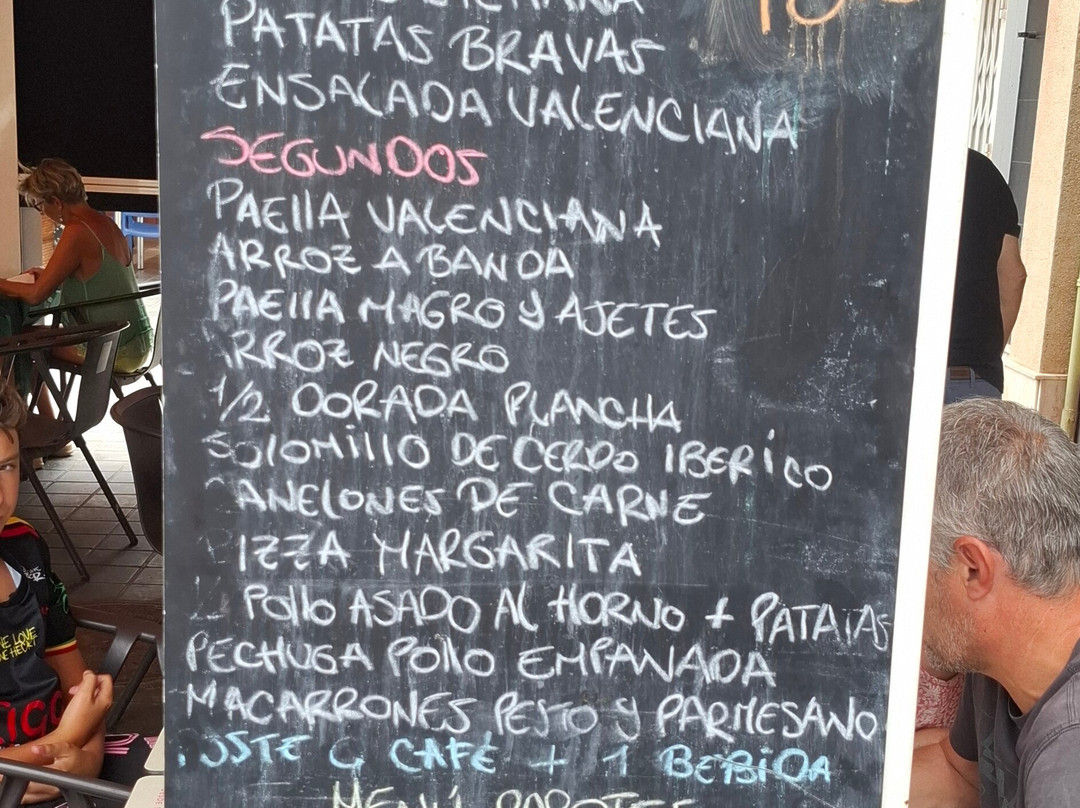 PATATAS BRAVAS
ENSALADA VALENCIANA
SEGUNDOS
PAEllA VALENCIANA
ARROZ A BANDA
PAEllA MAGRO Y AJETES
ARROZ NEGRO
1/2 DORADA PLANCHA
SOlOMillO DE CERDO IBERíCO
CANELONES DE CARNE
PIZZA MARGARITA
POllO ASADO Al HORNO + PATATAS
PECHUGA POllO EMPANADA
MACARRONES PESTO Y PARMESANO
CAFÉ + 1 BEBIDA
MENÚ